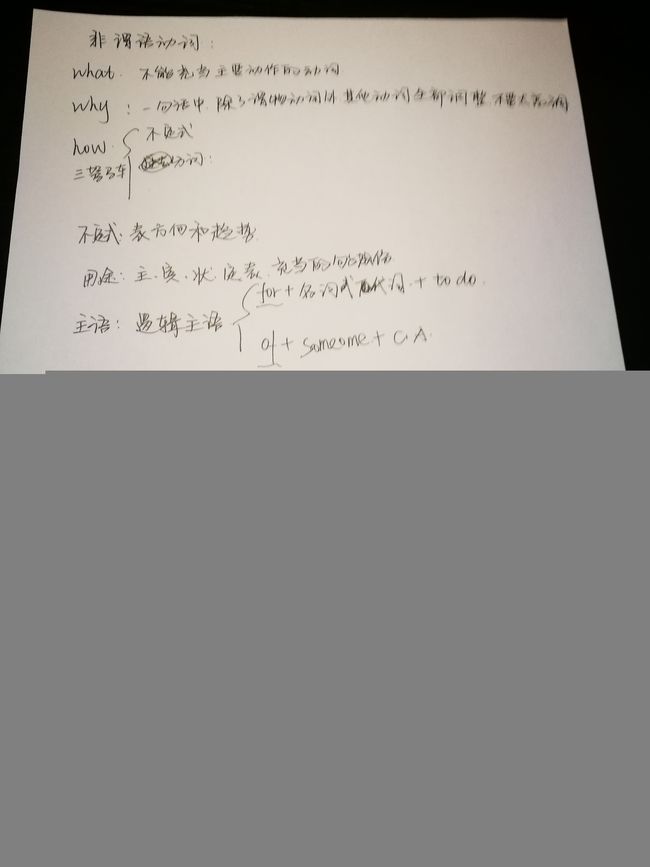 非谓语动词:
what. 不能充当主要动作的动词
why: 一句话中,除了谓物动词外其他动词全部调整,不要太
how. { 不定式
三驾马车 动词:
不定式: 表方向和趋势
用途: 主、宾、状、定、表、充当的
主语: 逻辑主语 { for + 名词或 代词 + to do.
of + someome +